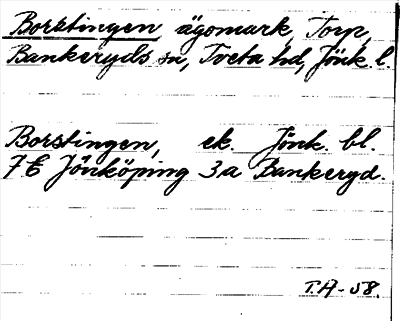 Borstingen ägomark, Torp,
Bankeryds sn, Tveta hd, Jönk. l.
Borstingen, ek. Jönk. bl.
7E Jönköping 3a Bankeryd.
T.A-58.